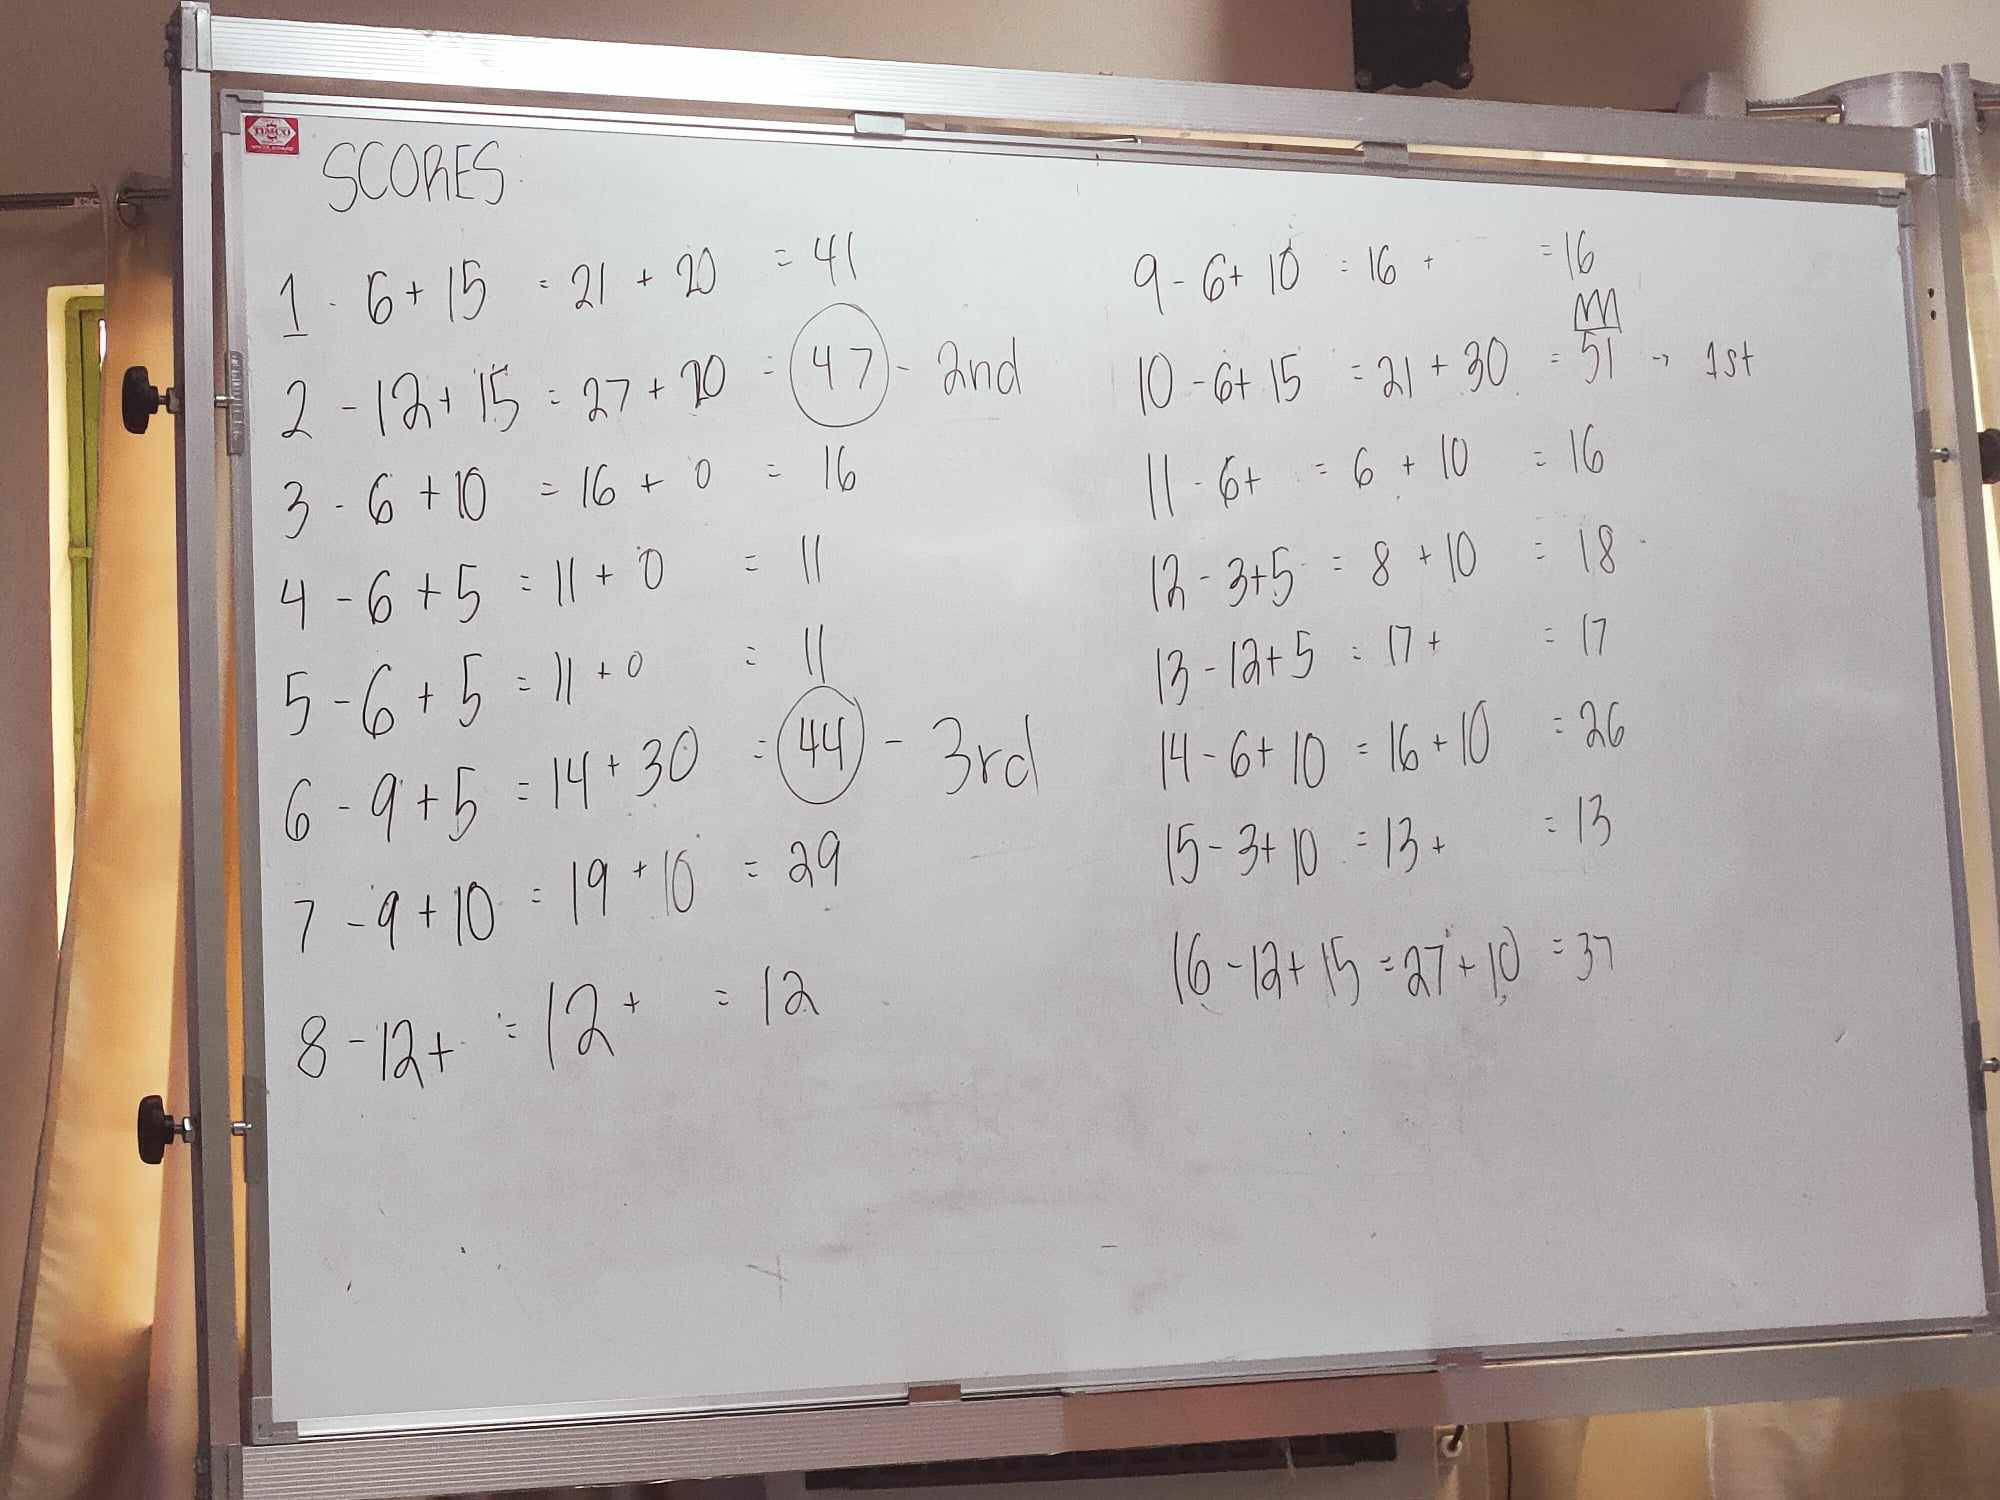 TIMCO
SCORES:
1 - 6 + 15 = 21 + 20 = 41
2 - 12 + 15 = 27 + 20 = 47 - 2nd
3 - 6 + 10 = 16 + 0 = 16
4 - 6 + 5 = 11 + 0 = 11
5 - 6 + 5 = 11 + 0 = 11
6 - 9 + 5 = 14 + 30 = 44 - 3rd
7 - 9 + 10 = 19 + 10 = 29
8 - 12 + = 12 + = 12
9 - 6 + 10 = 16 + = 16
10 - 6 + 15 = 21 + 30 = 51 → 1st
11 - 6 + = 6 + 10 = 16
12 - 3 + 5 = 8 + 10 = 18
13 - 12 + 5 = 17 + = 17
14 - 6 + 10 = 16 + 10 = 26
15 - 3 + 10 = 13 + = 13
16 - 12 + 15 = 27 + 10 = 37